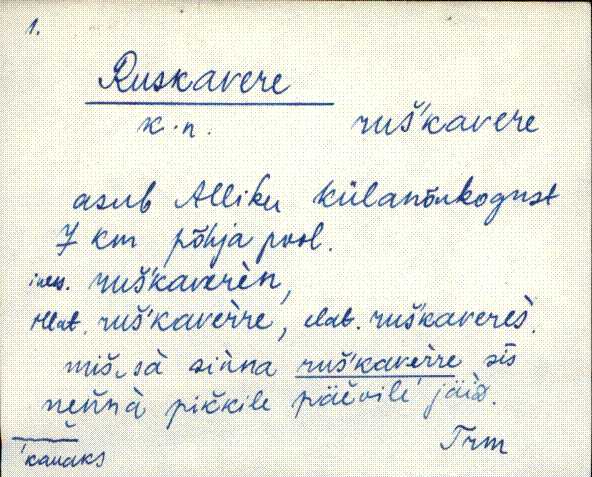 1.
Ruskavere
k.n. ruš́kavere
asub Alliku külanõukogust
7 km põhja pool.
iness. ruš́kaverèn,
illat. ruš́kavèrre, elat. ruš́kaverès.
miš‿sà sinna ruš́kavèrre sīs
nennà pikkile päevile jäid.
Trm
kauaks